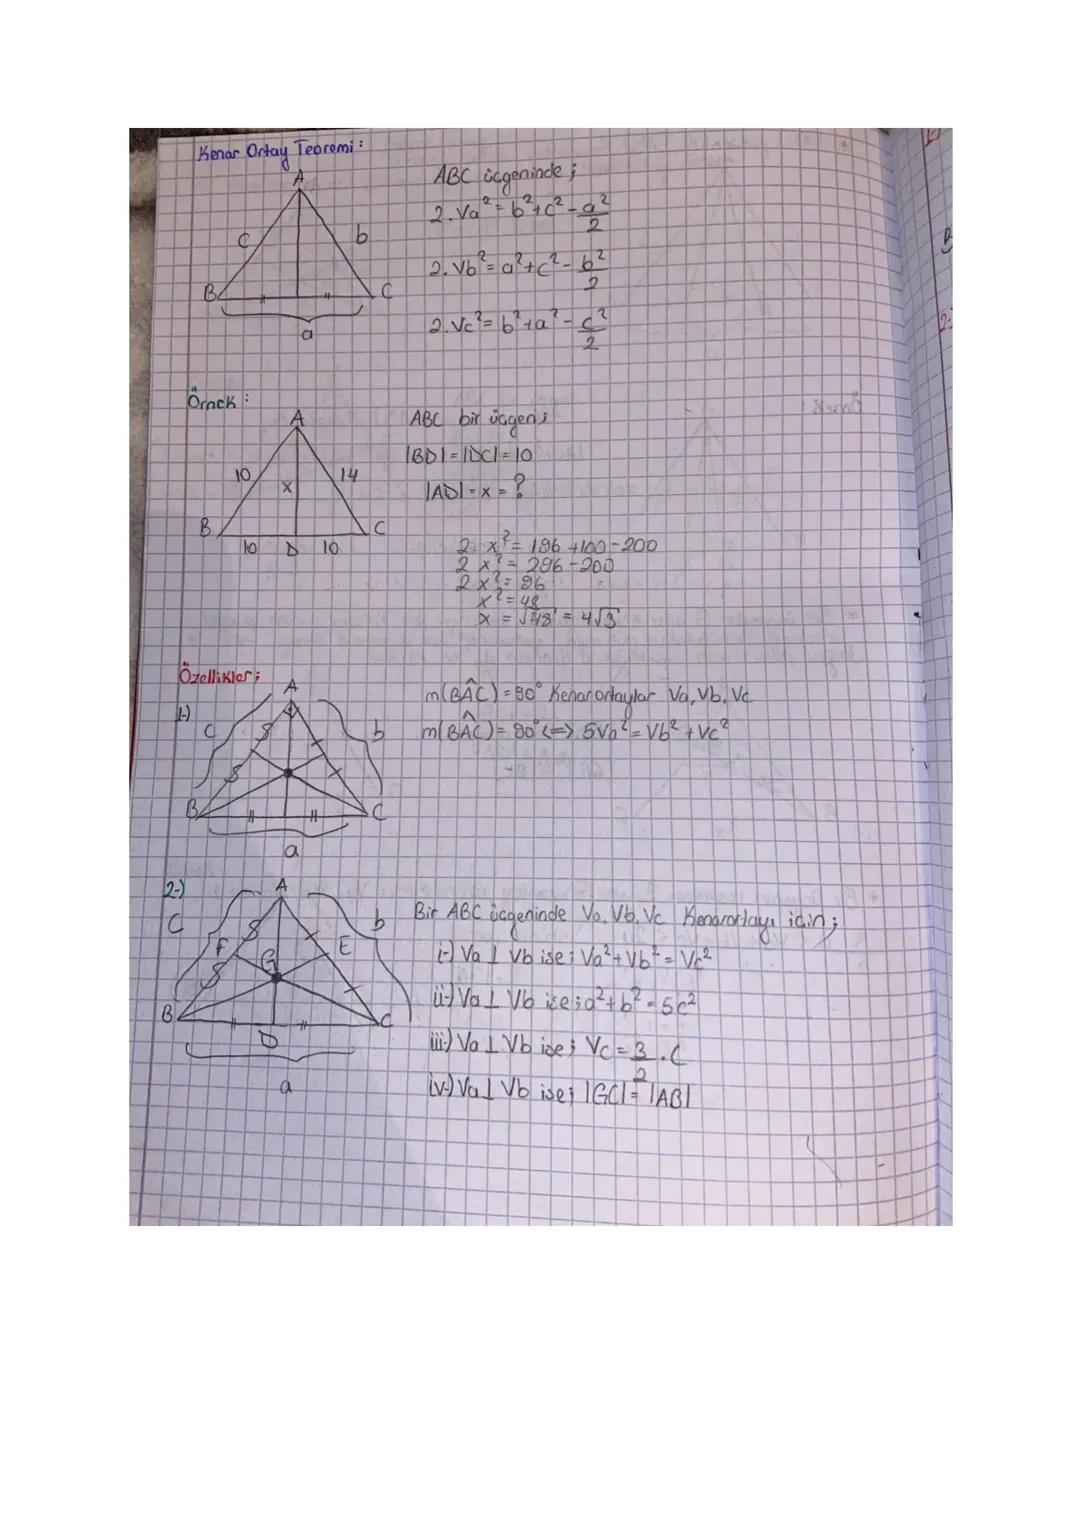 Kenar Ortay Teoremi:
A
c
b
B
C
a
ABC üçgeninde;
2.Va² = b²+c²-a²/2
2.Vb² = a²+c²-b²/2
2.Vc² = b²+a²-c²/2
Örnek:
A
10
x
14
B
C
10 D 10
ABC bir üçgen;
|BD| = |DC| = 10
|AD| = x = ?
2 x² = 196 +100-200
2 x² = 296-200
2 x² = 96
x² = 48
x = √48 = 4√3
Özellikler;
1-)
A
c
b
B
C
a
m(BÂC) = 90° Kenarortaylar Va, Vb, Vc
m(BÂC) = 90° <=> 5Va² = Vb² + Vc²
2-)
A
C
b
F
E
G
B
C
D
a
Bir ABC üçgeninde Va, Vb, Vc Kenarortayı için;
i-) Va ⊥ Vb ise; Va² + Vb² = Vc²
ii-) Va ⊥ Vb ise; a² + b² = 5c²
iii-) Va ⊥ Vb ise; Vc = 3/2 . C
iv-) Va ⊥ Vb ise; |GC| = |AB|